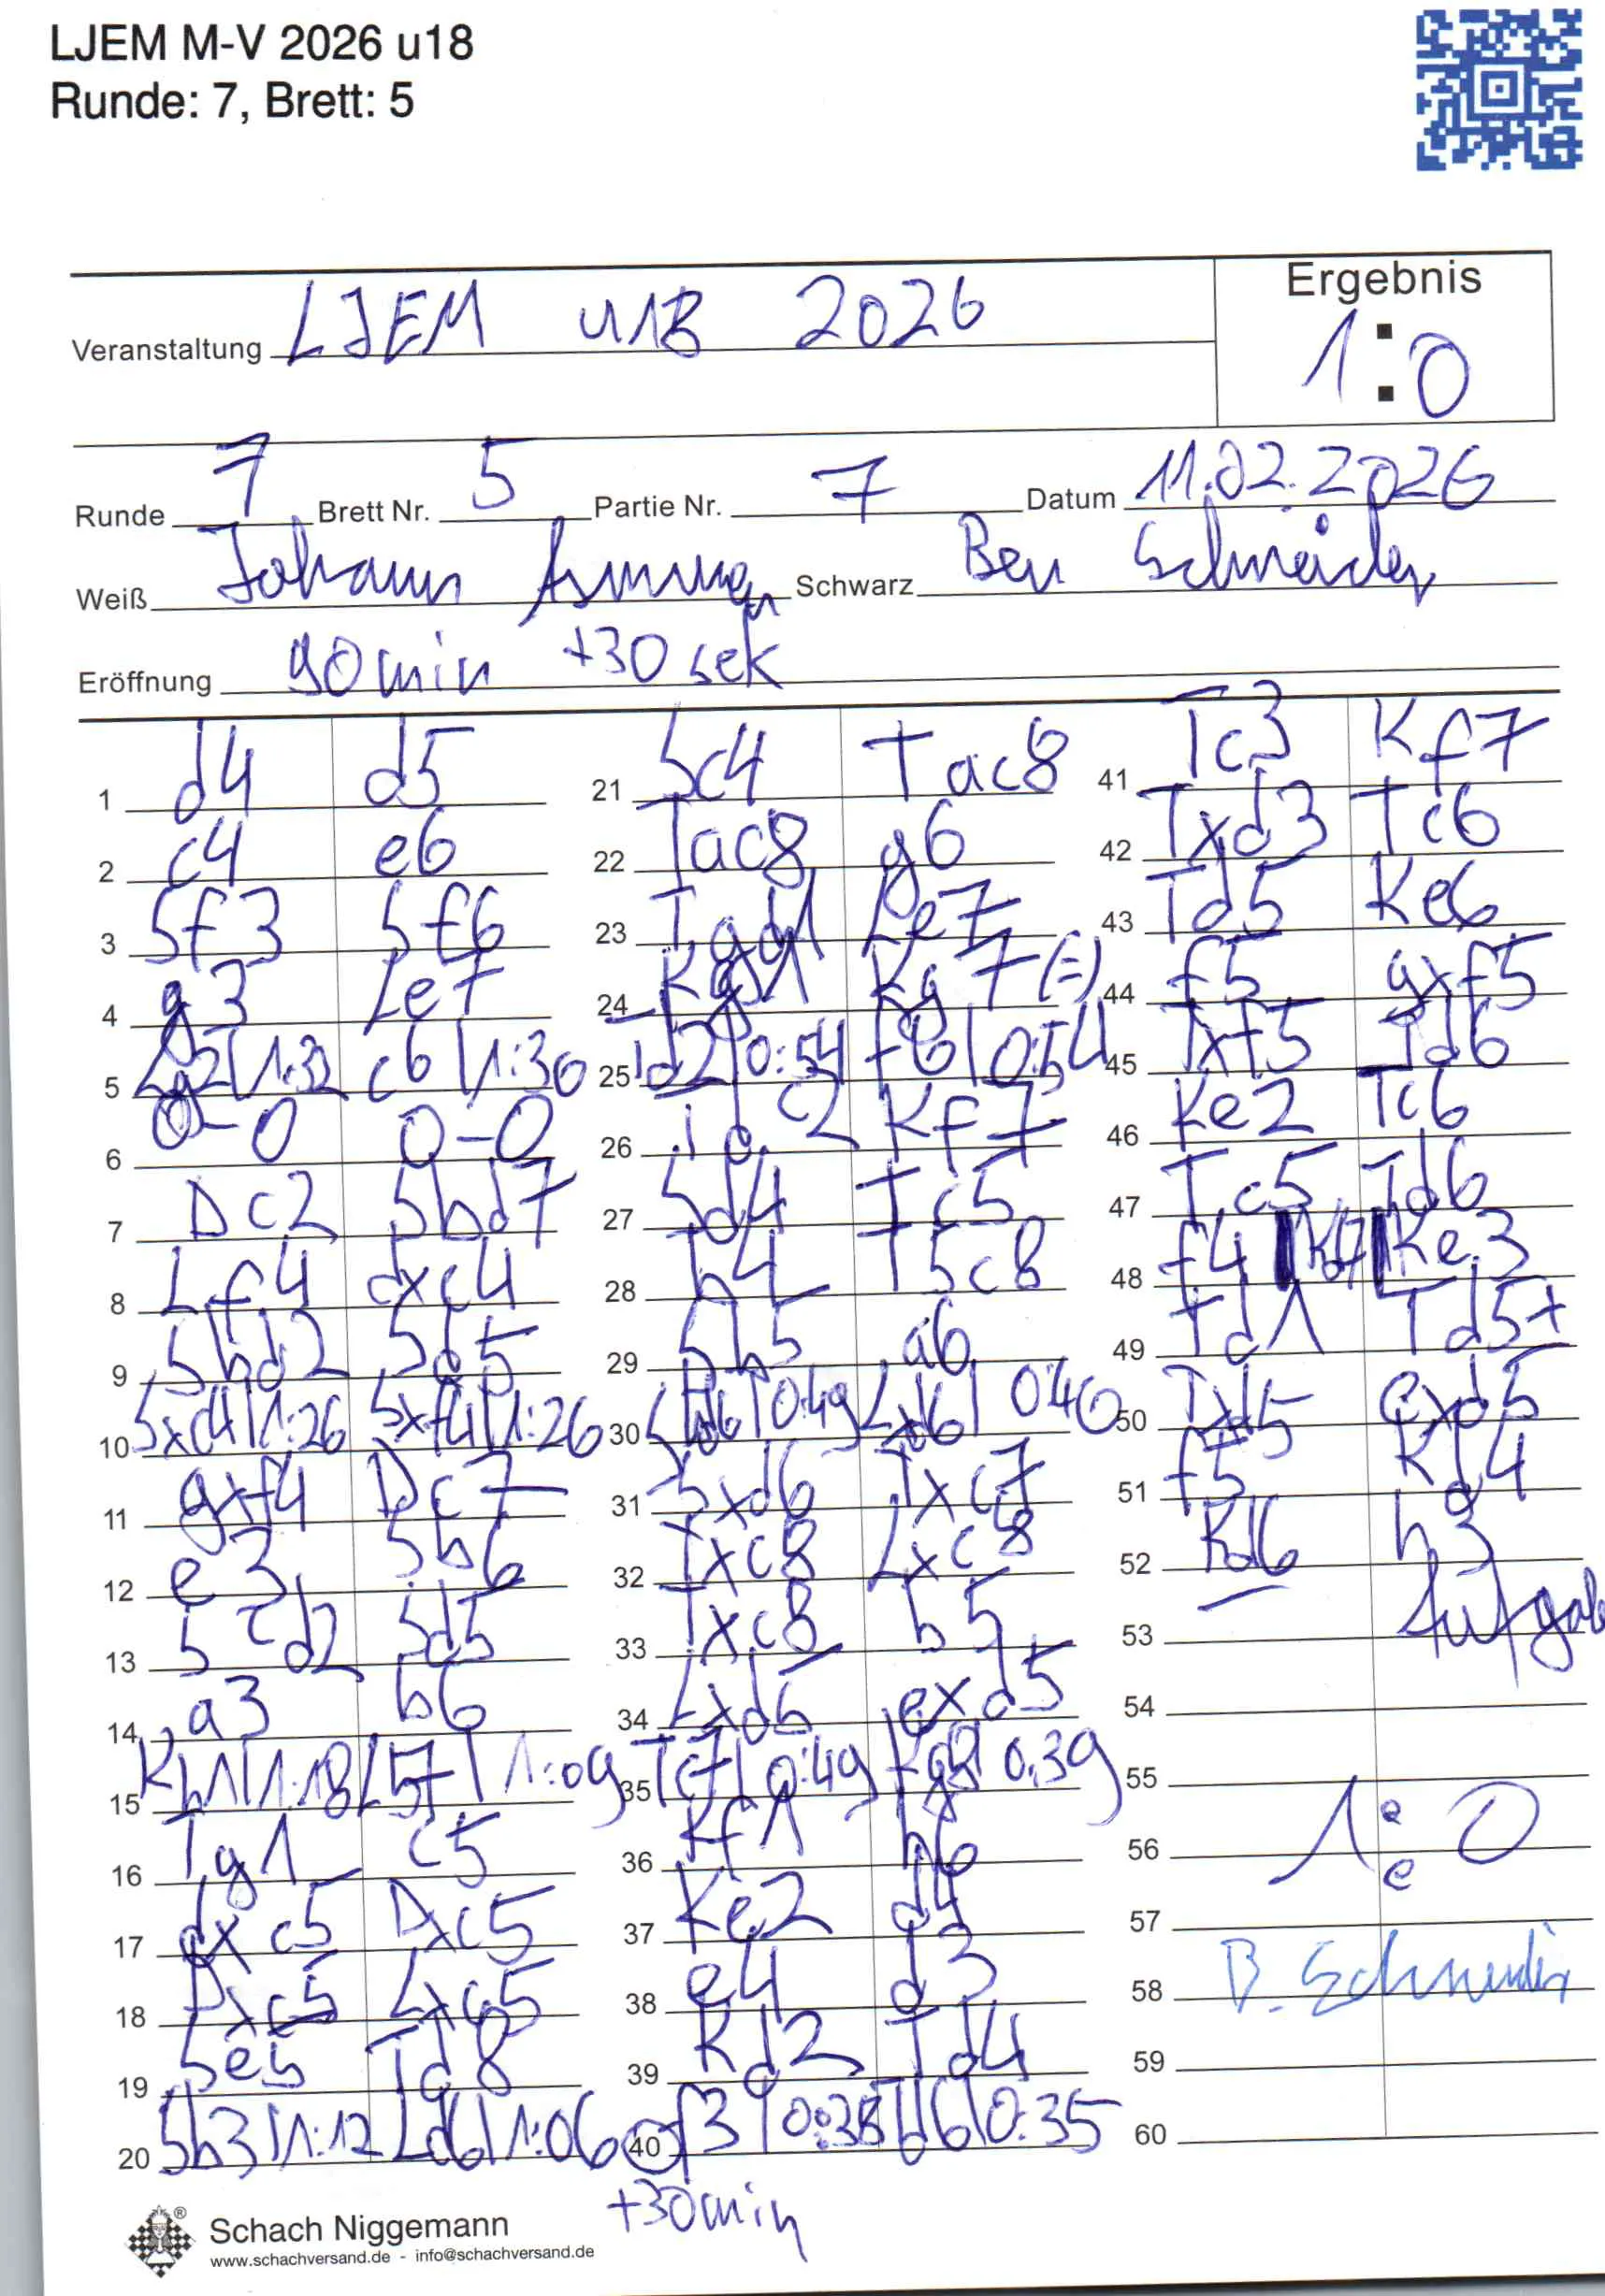 LJEM M-V 2026 u18
Runde: 7, Brett: 5
Ergebnis
Veranstaltung LJEM u18 2026 1:0
Runde 7 Brett Nr. 5 Partie Nr. 7 Datum 11.02.2026
Weiß Johann Schwarz Ben Schneider
Eröffnung 90min +30sek
1 d4 d5
2 c4 e6
3 Sf3 Sf6
4 g3 Le7
5 Lg2|1:32 c6|1:30
6 0-0 0-0
7 Dc2 Sbd7
8 Lf4 dxc4
9 Sbd2 Sd5
10 Sxc4|1:26 Sxf4|1:26
11 gxf4 Dc7
12 e3 Sb6
13 Scd2 Sd5
14 a3 b6
15 Kh1|1:18 Lb7|1:09
16 Tg1 c5
17 dxc5 Dxc5
18 Dxc5 Lxc5
19 Se5 Td8
20 Sb3|1:12 Ld6|1:06
21 Sc4 Tac8
22 Tac8 g6
23 Tgd1 Le7
24 Kg1 Kg7(=)
25 Td2|0:54 f6|0:54
26 c2 Kf7
27 Sd4 Tc5
28 b4 T5c8
29 Sb5 a6
30 |0:49 Lxd6|0:46
31 Sxd6 Txc7
32 Txc8 Lxc8
33 Txc8 b5
34 Lxd5 exd5
35 Tc7|0:49 Kg8|0:39
36 Kf1 h6
37 Ke2 d4
38 e4 d3
39 Kd2 Td4
40 f3|0:38 |0:35
+30min
41 Tc3 Kf7
42 Txd3 Tc6
43 Td5 Ke6
44 f5 gxf5
45 Txf5 Td6
46 Ke2 Tc6
47 Tc5 Td6
48 f4 Ke3
49 Td1 Td5+
50 Txd5 exd5
51 f5 Kd4
52 Kd6 h3
53 Aufgabe
54
55
56 1:0
57
58 B. Schneider
59
60
Schach Niggemann
www.schachversand.de - info@schachversand.de